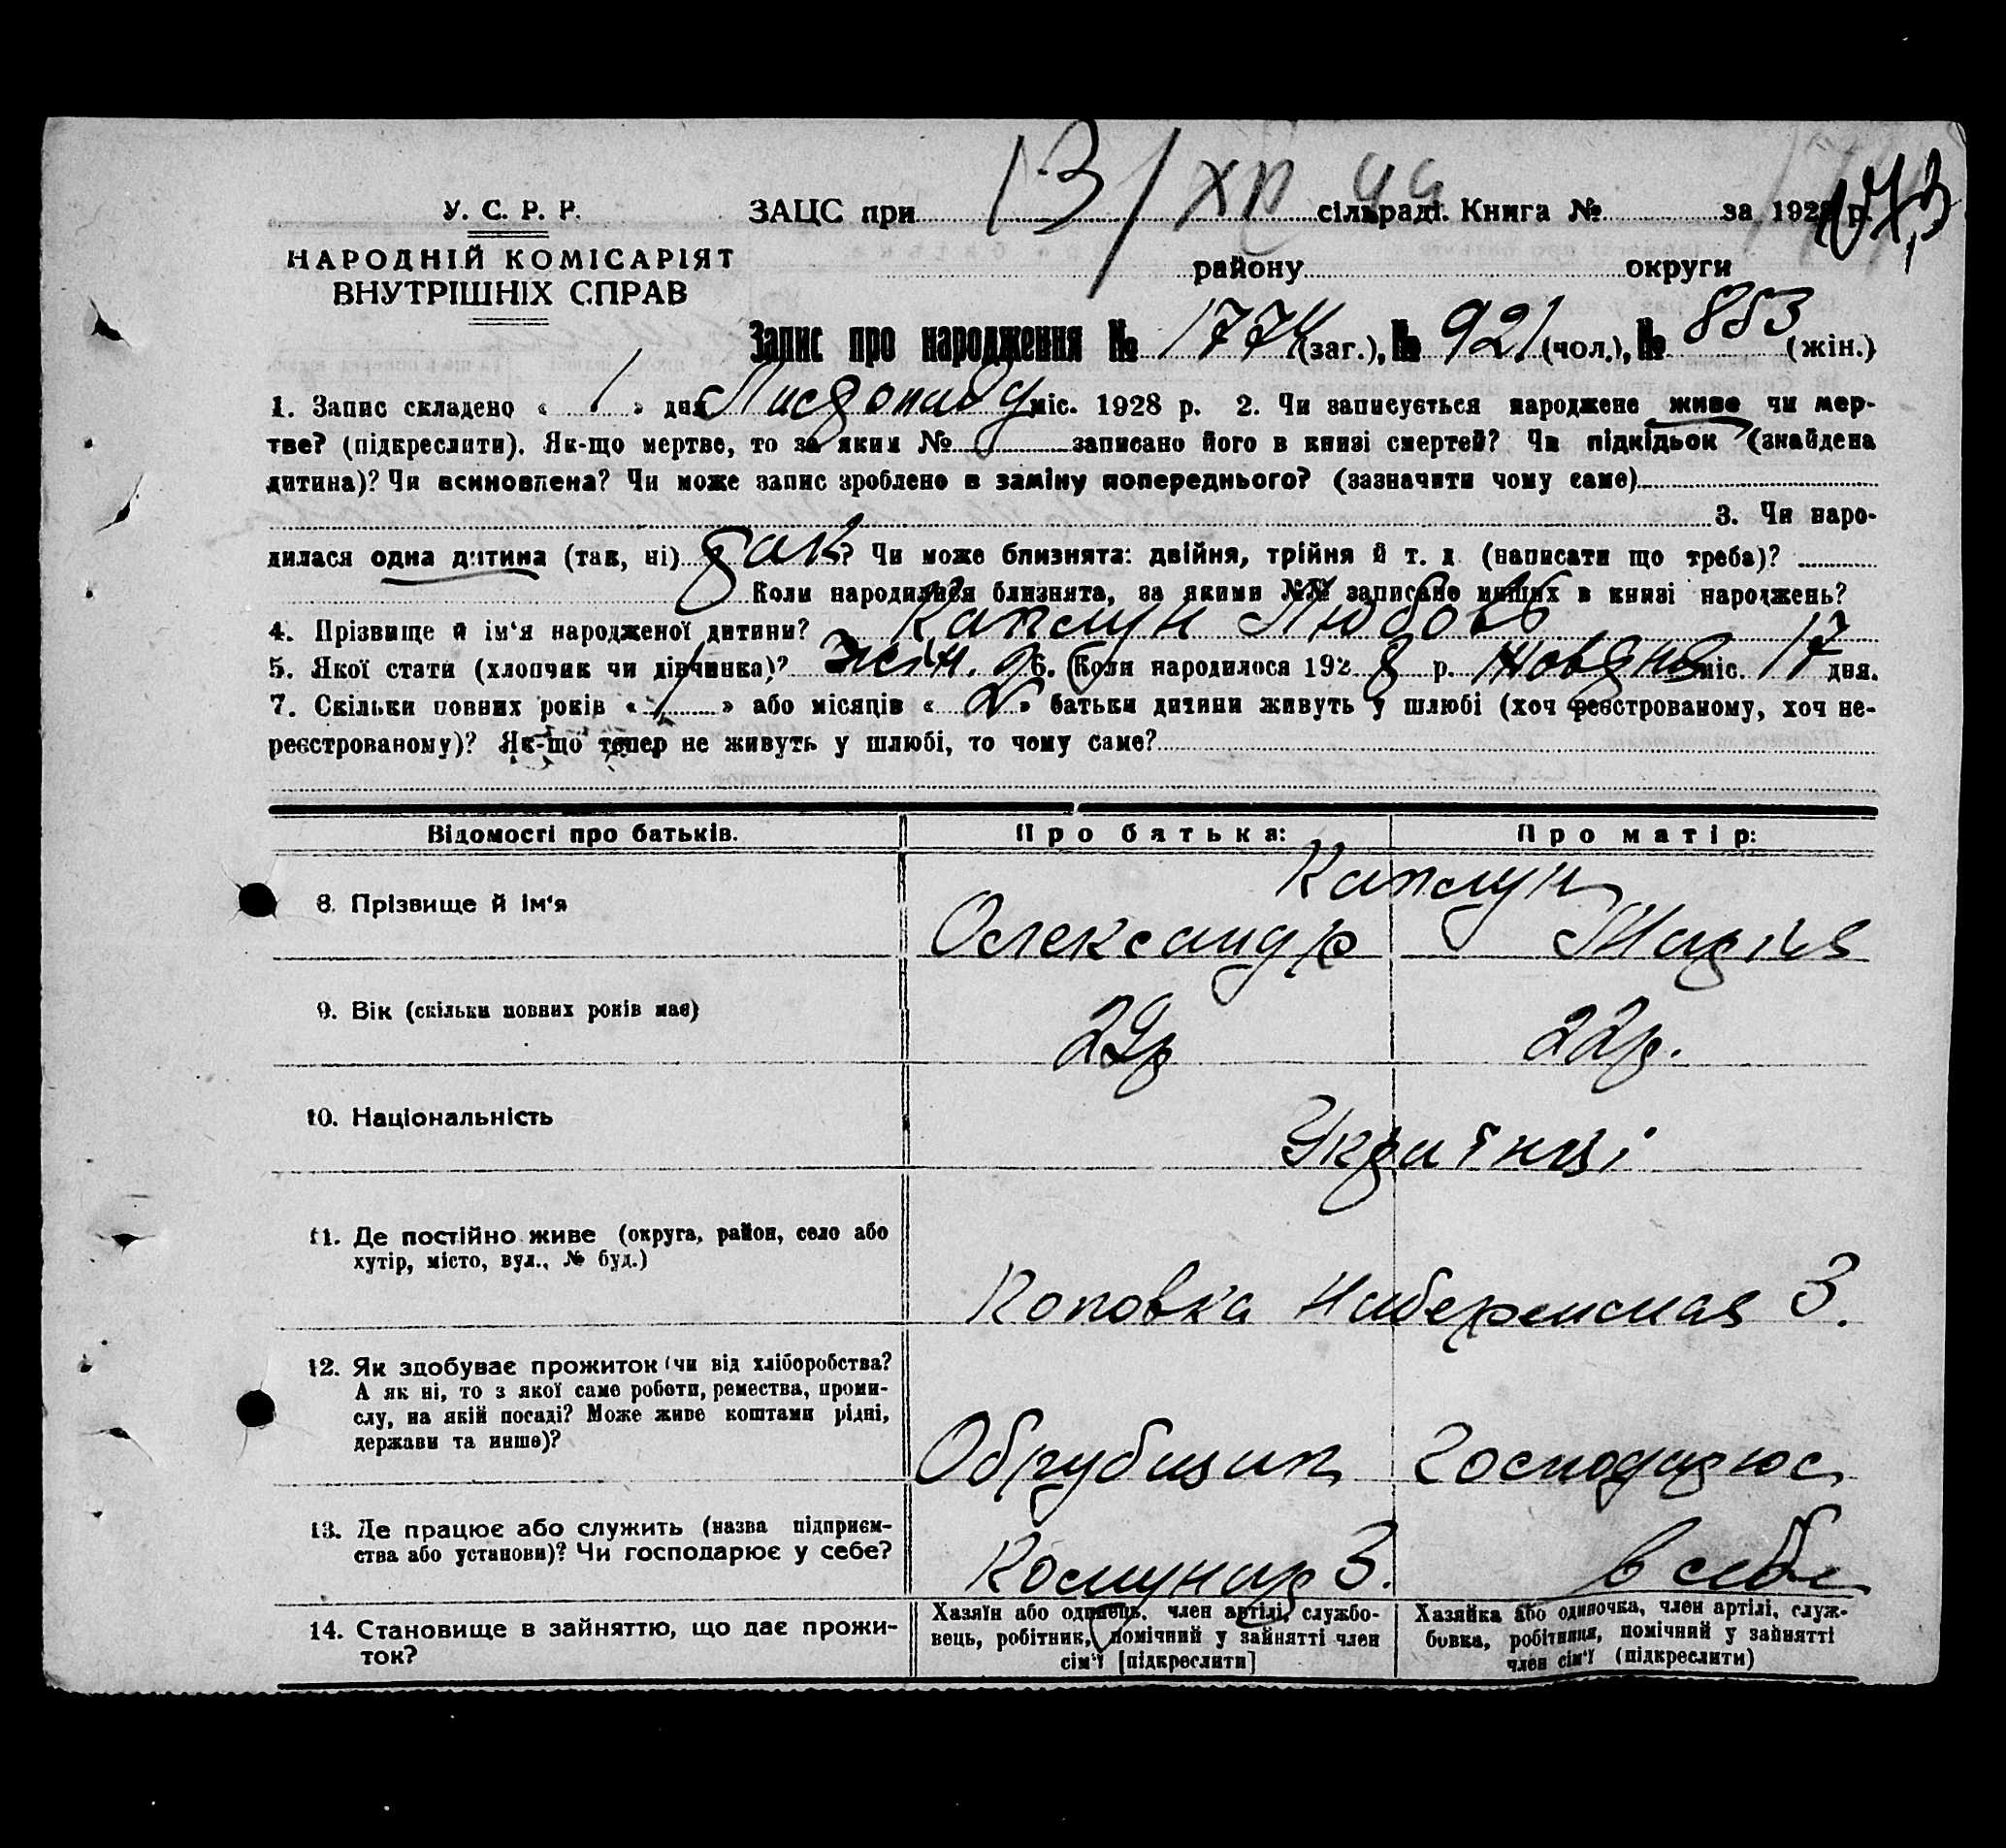 13/XII 44
1073
У. С. Р. Р.
ЗАЦС при сільраді. Книга № за 1928 р.
НАРОДНІЙ КОМІСАРІЯТ
ВНУТРІШНІХ СПРАВ
району округи
Запис про народження № 1774 (заг.), № 921 (чол.), № 853 (жін.)
1. Запис складено « 1 » дня Листопаду міс. 1928 р. 2. Чи записується народжене живе чи мер-
тве? (підкреслити). Як-що мертве, то за яким № записано його в книзі смертей? Чи підкідьок (знайдена
дитина)? Чи всиновлена? Чи може запис зроблено в заміну попереднього? (зазначити чому саме)
3. Чи наро-
дилася одна дитина (так, ні) так? Чи може близнята: двійня, трійня й т. д (написати що треба)?
Коли народилися близнята, за якими №№ записано инших в книзі народжень?
4. Прізвище й ім'я народженої дитини? Каплун Любовь
5. Якої стати (хлопчик чи дівчинка)? жін. 6. Коли народилося 1928 р. Жовтня міс. 17 дня.
7. Скільки повних років « 1 » або місяців « 2 » батьки дитини живуть у шлюбі (хоч реєстрованому, хоч не-
реєстрованому)? Як-що тепер не живуть у шлюбі, то чому саме?
Відомості про батьків. Про батька: Про матір:
Каплун
8. Прізвище й ім'я Олександр Марія
9. Вік (скільки повних років має) 29р 22р.
10. Національність Українці
11. Де постійно живе (округа, район, село або
хутір, місто, вул., № буд.)
Поповка Набережная 3.
12. Як здобуває прожиток (чи від хліборобства?
А як ні, то з якої саме роботи, ремества, проми-
слу, на якій посаді? Може живе коштами рідні,
держави та инше)?
Обрубщик Господарює
13. Де працює або служить (назва підприєм-
ства або установи)? Чи господарює у себе?
Комунар З. в себе
14. Становище в зайняттю, що дає прожи-
ток?
Хазяїн або одинець, член артілі, службо-
вець, робітник, помічний у зайнятті член
сім'ї [підкреслити]
Хазяйка або одиночка, член артілі, служ-
бовка, робітниця, помічний у зайнятті
член сім'ї (підкреслити)